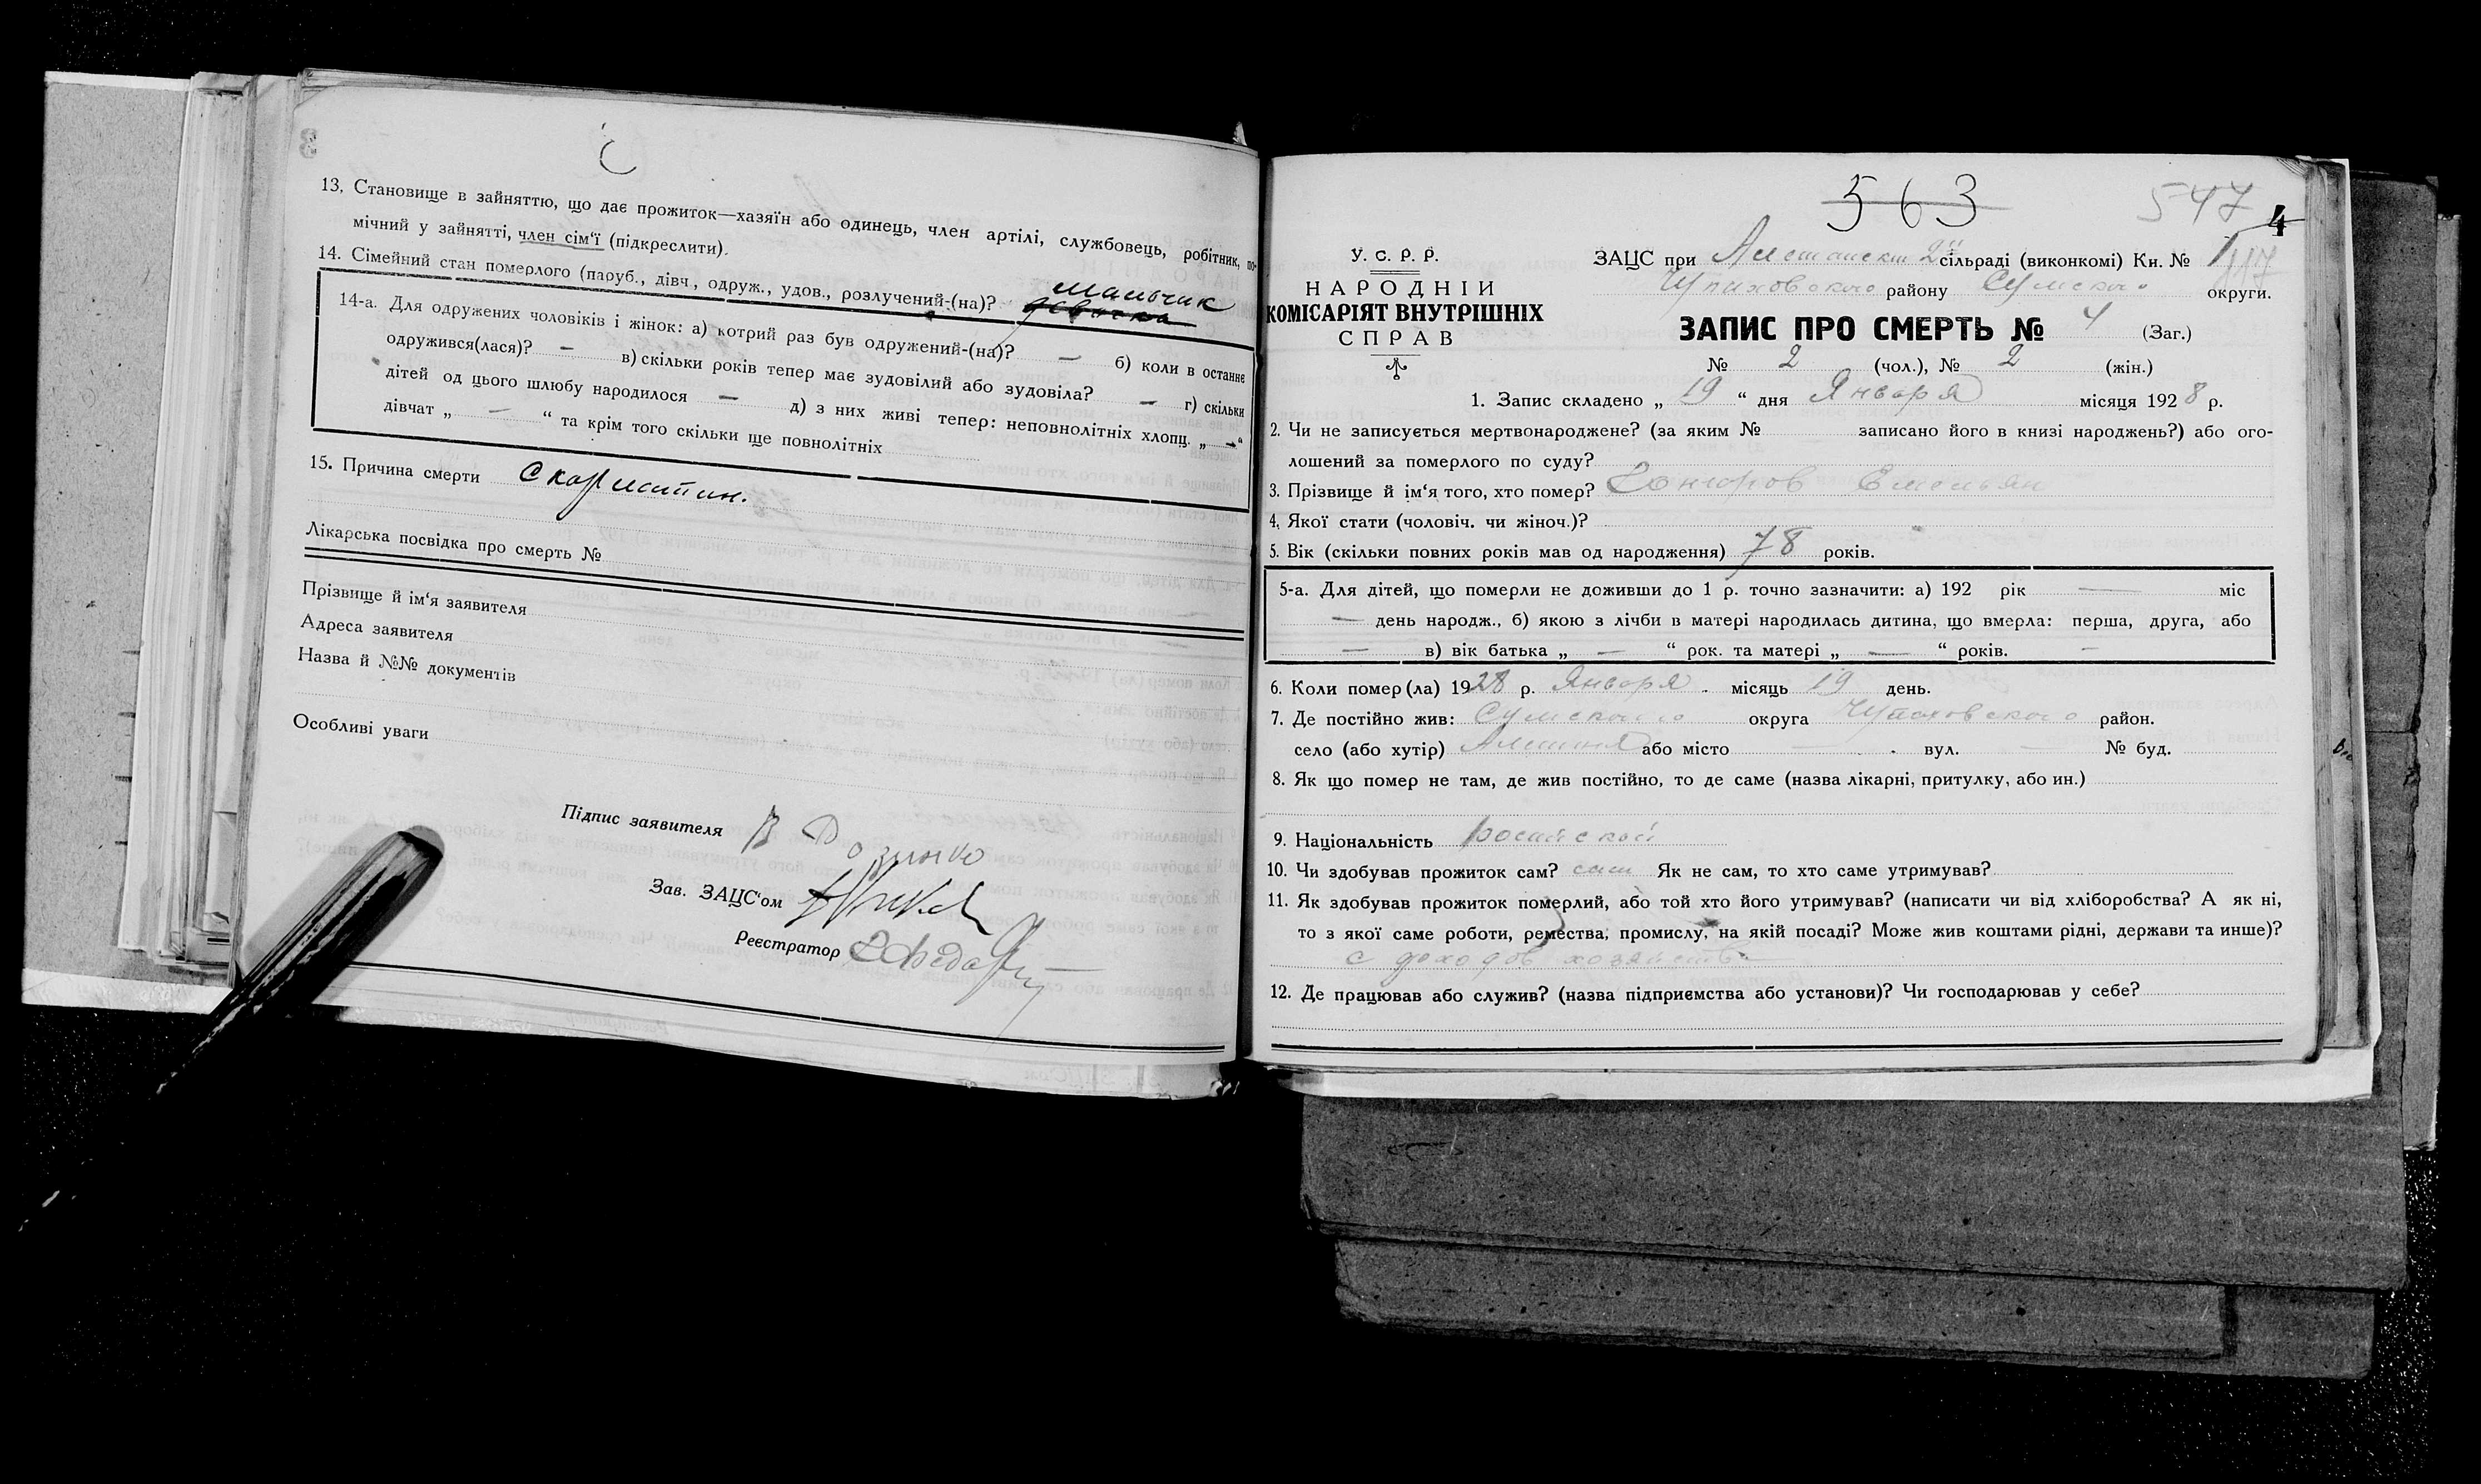 13. Становище в зайняттю, що дає прожиток—хазяїн або одинець, член артілі, службовець, робітник, по-
мічний у зайнятті, член сім'ї (підкреслити).
14. Сімейний стан померлого (паруб., дівч., одруж., удов., розлучений-(на)? мальчик
14-а. Для одружених чоловіків і жінок: а) котрий раз був одружений-(на)? — б) коли в останнє
одружився(лася)? — в) скільки років тепер має зудовілий або зудовіла? — г) скільки
дітей од цього шлюбу народилося — д) з них живі тепер: неповнолітніх хлопц. „ — “
дівчат „ — “ та крім того скільки ще повнолітніх
15. Причина смерти Скарлатин.
Лікарська посвідка про смерть №
Прізвище й ім'я заявителя
Адреса заявителя
Назва й №№ документів
Особливі уваги
Підпис заявителя
Зав. ЗАЦС'ом
Реєстратор
563
547
4
У. С. Р. Р.
НАРОДНІЙ
КОМІСАРІЯТ ВНУТРІШНІХ
СПРАВ
ЗАЦС при сільраді (виконкомі) Кн. № 1
Чупаховского району Сумского округи.
ЗАПИС ПРО СМЕРТЬ № 4 (Заг.)
№ 2 (чол.), № 2 (жін.)
1. Запис складено „ 19 “ дня Января місяця 1928 р.
2. Чи не записується мертвонароджене? (за яким № записано його в книзі народжень?) або ого-
лошений за померлого по суду?
3. Прізвище й ім'я того, хто помер? Емельян
4. Якої стати (чоловіч. чи жіноч.)?
5. Вік (скільки повних років мав од народження) 78 років.
5-а. Для дітей, що померли не доживши до 1 р. точно зазначити: а) 192 рік — міс
— день народж., б) якою з лічби в матері народилась дитина, що вмерла: перша, друга, або
— в) вік батька „ — “ рок. та матері „ — “ років. —
6. Коли помер(ла) 1928 р. Января місяць 19 день.
7. Де постійно жив: Сумского округа Чупаховского район.
село (або хутір) або місто — вул. — № буд.
8. Як що помер не там, де жив постійно, то де саме (назва лікарні, притулку, або ин.)
9. Національність
10. Чи здобував прожиток сам? сам Як не сам, то хто саме утримував?
11. Як здобував прожиток померлий, або той хто його утримував? (написати чи від хліборобства? А як ні,
то з якої саме роботи, ремества, промислу, на якій посаді? Може жив коштами рідні, держави та инше)?
с доходов хозяйства
12. Де працював або служив? (назва підприємства або установи)? Чи господарював у себе?